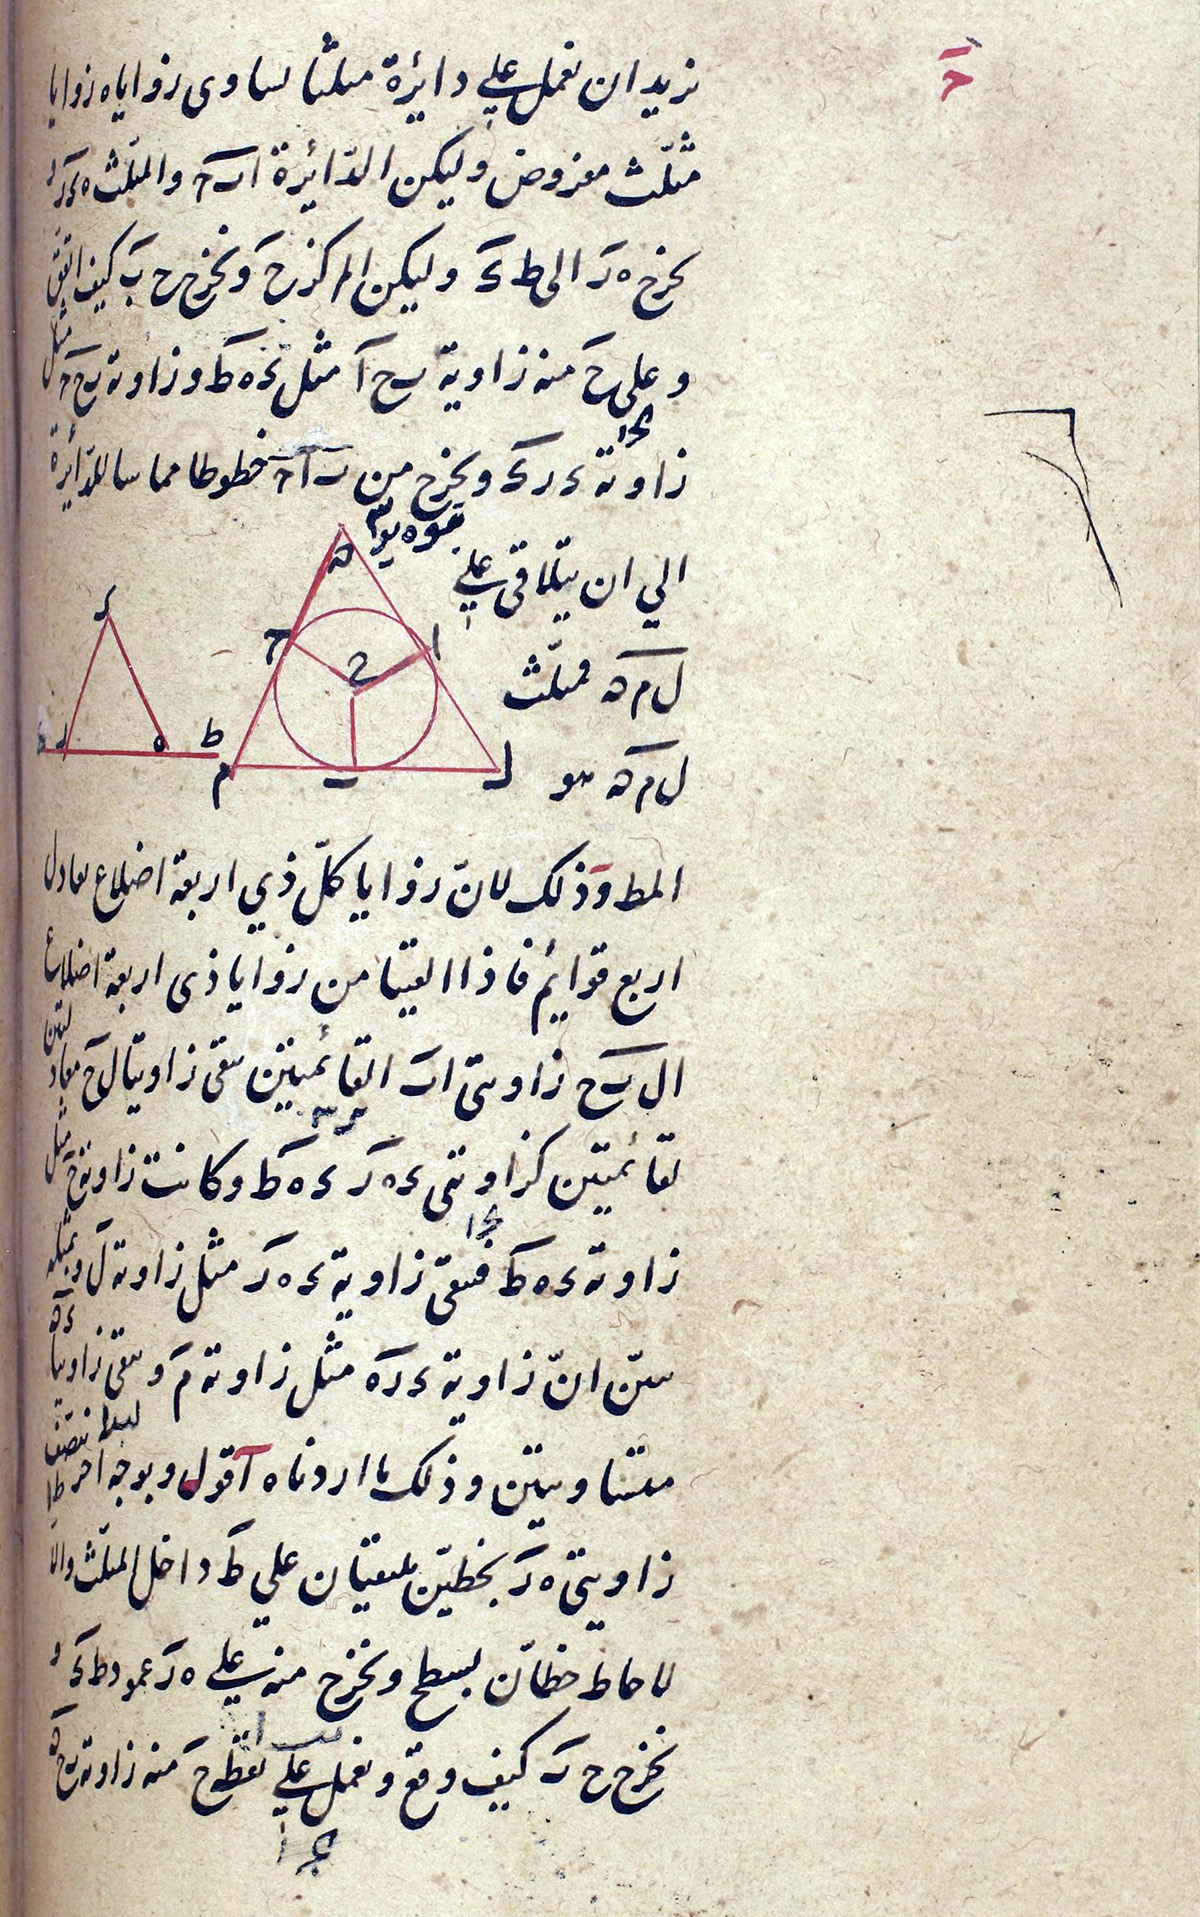 نريد ان نعمل على دائرة مثلثا تساوى زواياه زوايا
مثلّث مفروض وليكن الدّائرة ا ب ح والمثلّث ء ه ر و
نخرج ه ر الى ط ك وليكن المركز ح ونخرج ح ب كيف اتفق
و على ح منه زاوية ب ح ا مثل ء ه ط وزاوية ب ح ح مثل
زاوية ء ر ك ونخرج من ب ا ح خطوطا مماسا للدّائرة
الي ان يتلاقى على
ل م ن فمثلّث
ل م ن هو
المط وذلك لانّ زوايا كلّ ذي اربعة اضلاع تعادل
اربع قوائم فاذا القينا من زوايا ذى اربعة اضلاع
ا ل ب ح زاويتى ا ب القائمتين تبقى زاويتا ل ح معادلتين
لقائمتين كزاويتى ء ه ر ء ه ط وكانت زاوية ح مثل
زاوية ء ه ط فتبقى زاوية ء ه ر مثل زاوية ل وبمثله
تبيّن انّ زاوية ء ر ه مثل زاوية م وتبقى زاويتا ء ن
متساويتين وذلك ما اردناه اقول وبوجه اخر ننصف
زاويتى ه ر بخطين يلتقيان على ط داخل المثلّث والا
لاحاط خطان بسطح ونخرج منه على ه ر عمود ط ك و
نخرج ح ب كيف وقع ونعمل على نقطة ح منه زاوية
ح
ا
ل
م
ب
ح
ن
ء
ر
ه
ط
ك